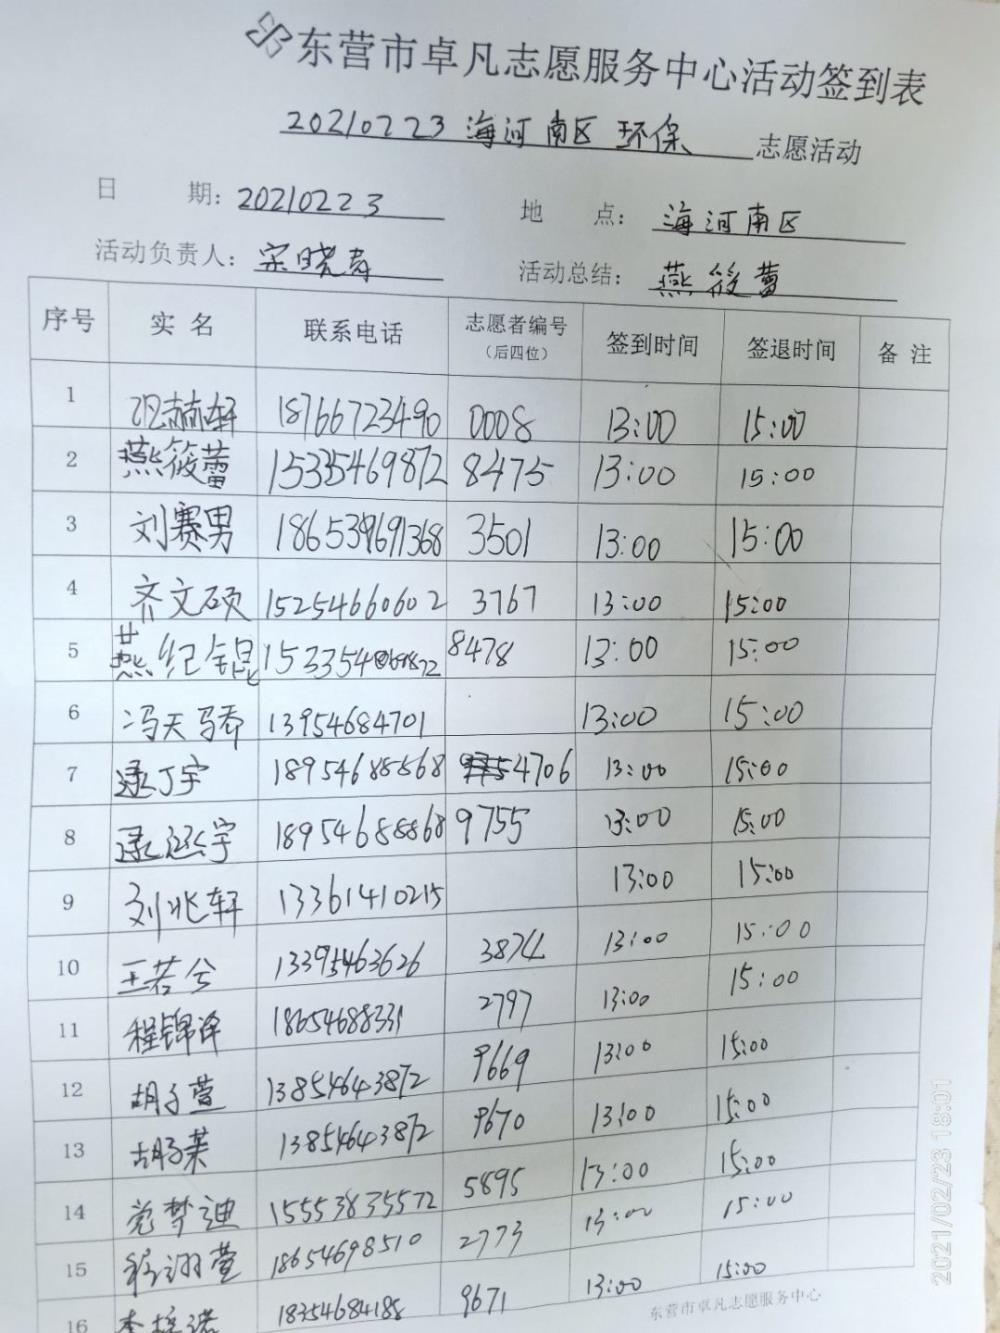 东营市卓凡志愿服务中心活动签到表
20210223 海河南区 环保 志愿活动
日 期：20210223 地 点：海河南区
活动负责人：宋晓青 活动总结：燕筱蕾
序号 实名 联系电话 志愿者编号（后四位） 签到时间 签退时间 备注
1 赫轩 18766723490 0008 13:00 15:00
2 燕筱蕾 15335469872 8475 13:00 15:00
3 刘赛男 3501 13:00 15:00
4 齐文硕 15254660602 3767 13:00 15:00
5 燕纪锟 8478 13:00 15:00
6 冯天骄 13954684701 13:00 15:00
7 逯丁宇 18954688868 4706 13:00 15:00
8 逯宇 18954688868 9755 13:00 15:00
9 刘兆轩 13361410215 13:00 15:00
10 王若兮 13395463626 3874 13:00 15:00
11 程锦泽 18654688331 2797 13:00 15:00
12 胡子萱 13854643872 9669 13:00 15:00
13 胡子茉 13854643872 9670 13:00 15:00
14 梦迪 15553835572 5895 13:00 15:00
15 翊萱 18654698510 2773 13:00 15:00
16 李诺 18354684185 9671 13:00 15:00
东营市卓凡志愿服务中心
2021/02/23 18:01